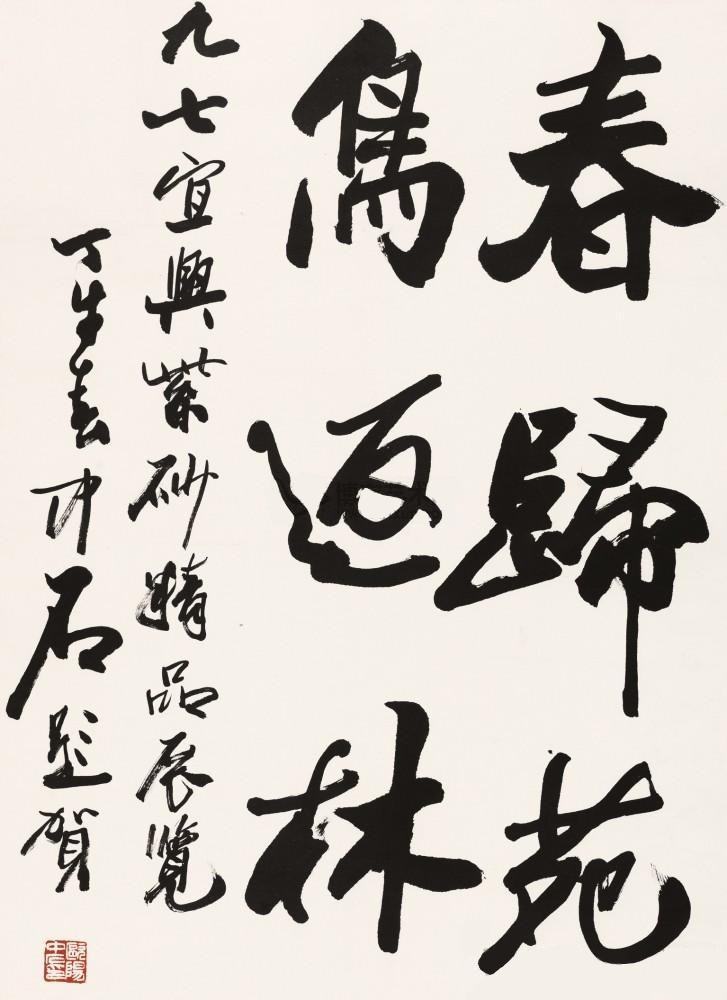 春歸苑
鳥返林
九七宜興紫砂精品展覽
丁丑春中石題賀
歐陽